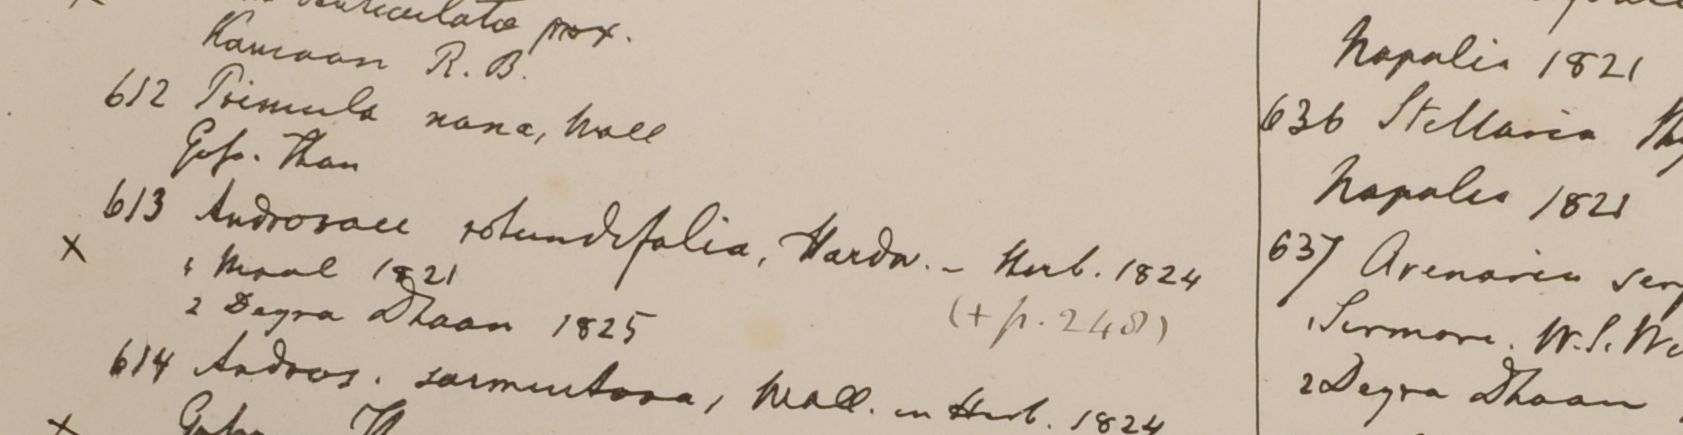 prox.
Kamaon R. B.
612 Primula nana, Wall
Gofs. Than
613 Androsace rotundifolia, Hardw. - Herb. 1824
x
1 1821
(+ p. 248)
2 Deyra Dhoon 1825
614 Andros. sarmentosa, Wall. in Herb. 1824
x
Napalia 1821
636 Stellaria
Napalia 1821
637 Arenaria serp
1 Sirmore. W.S.
2 Deyra Dhoon